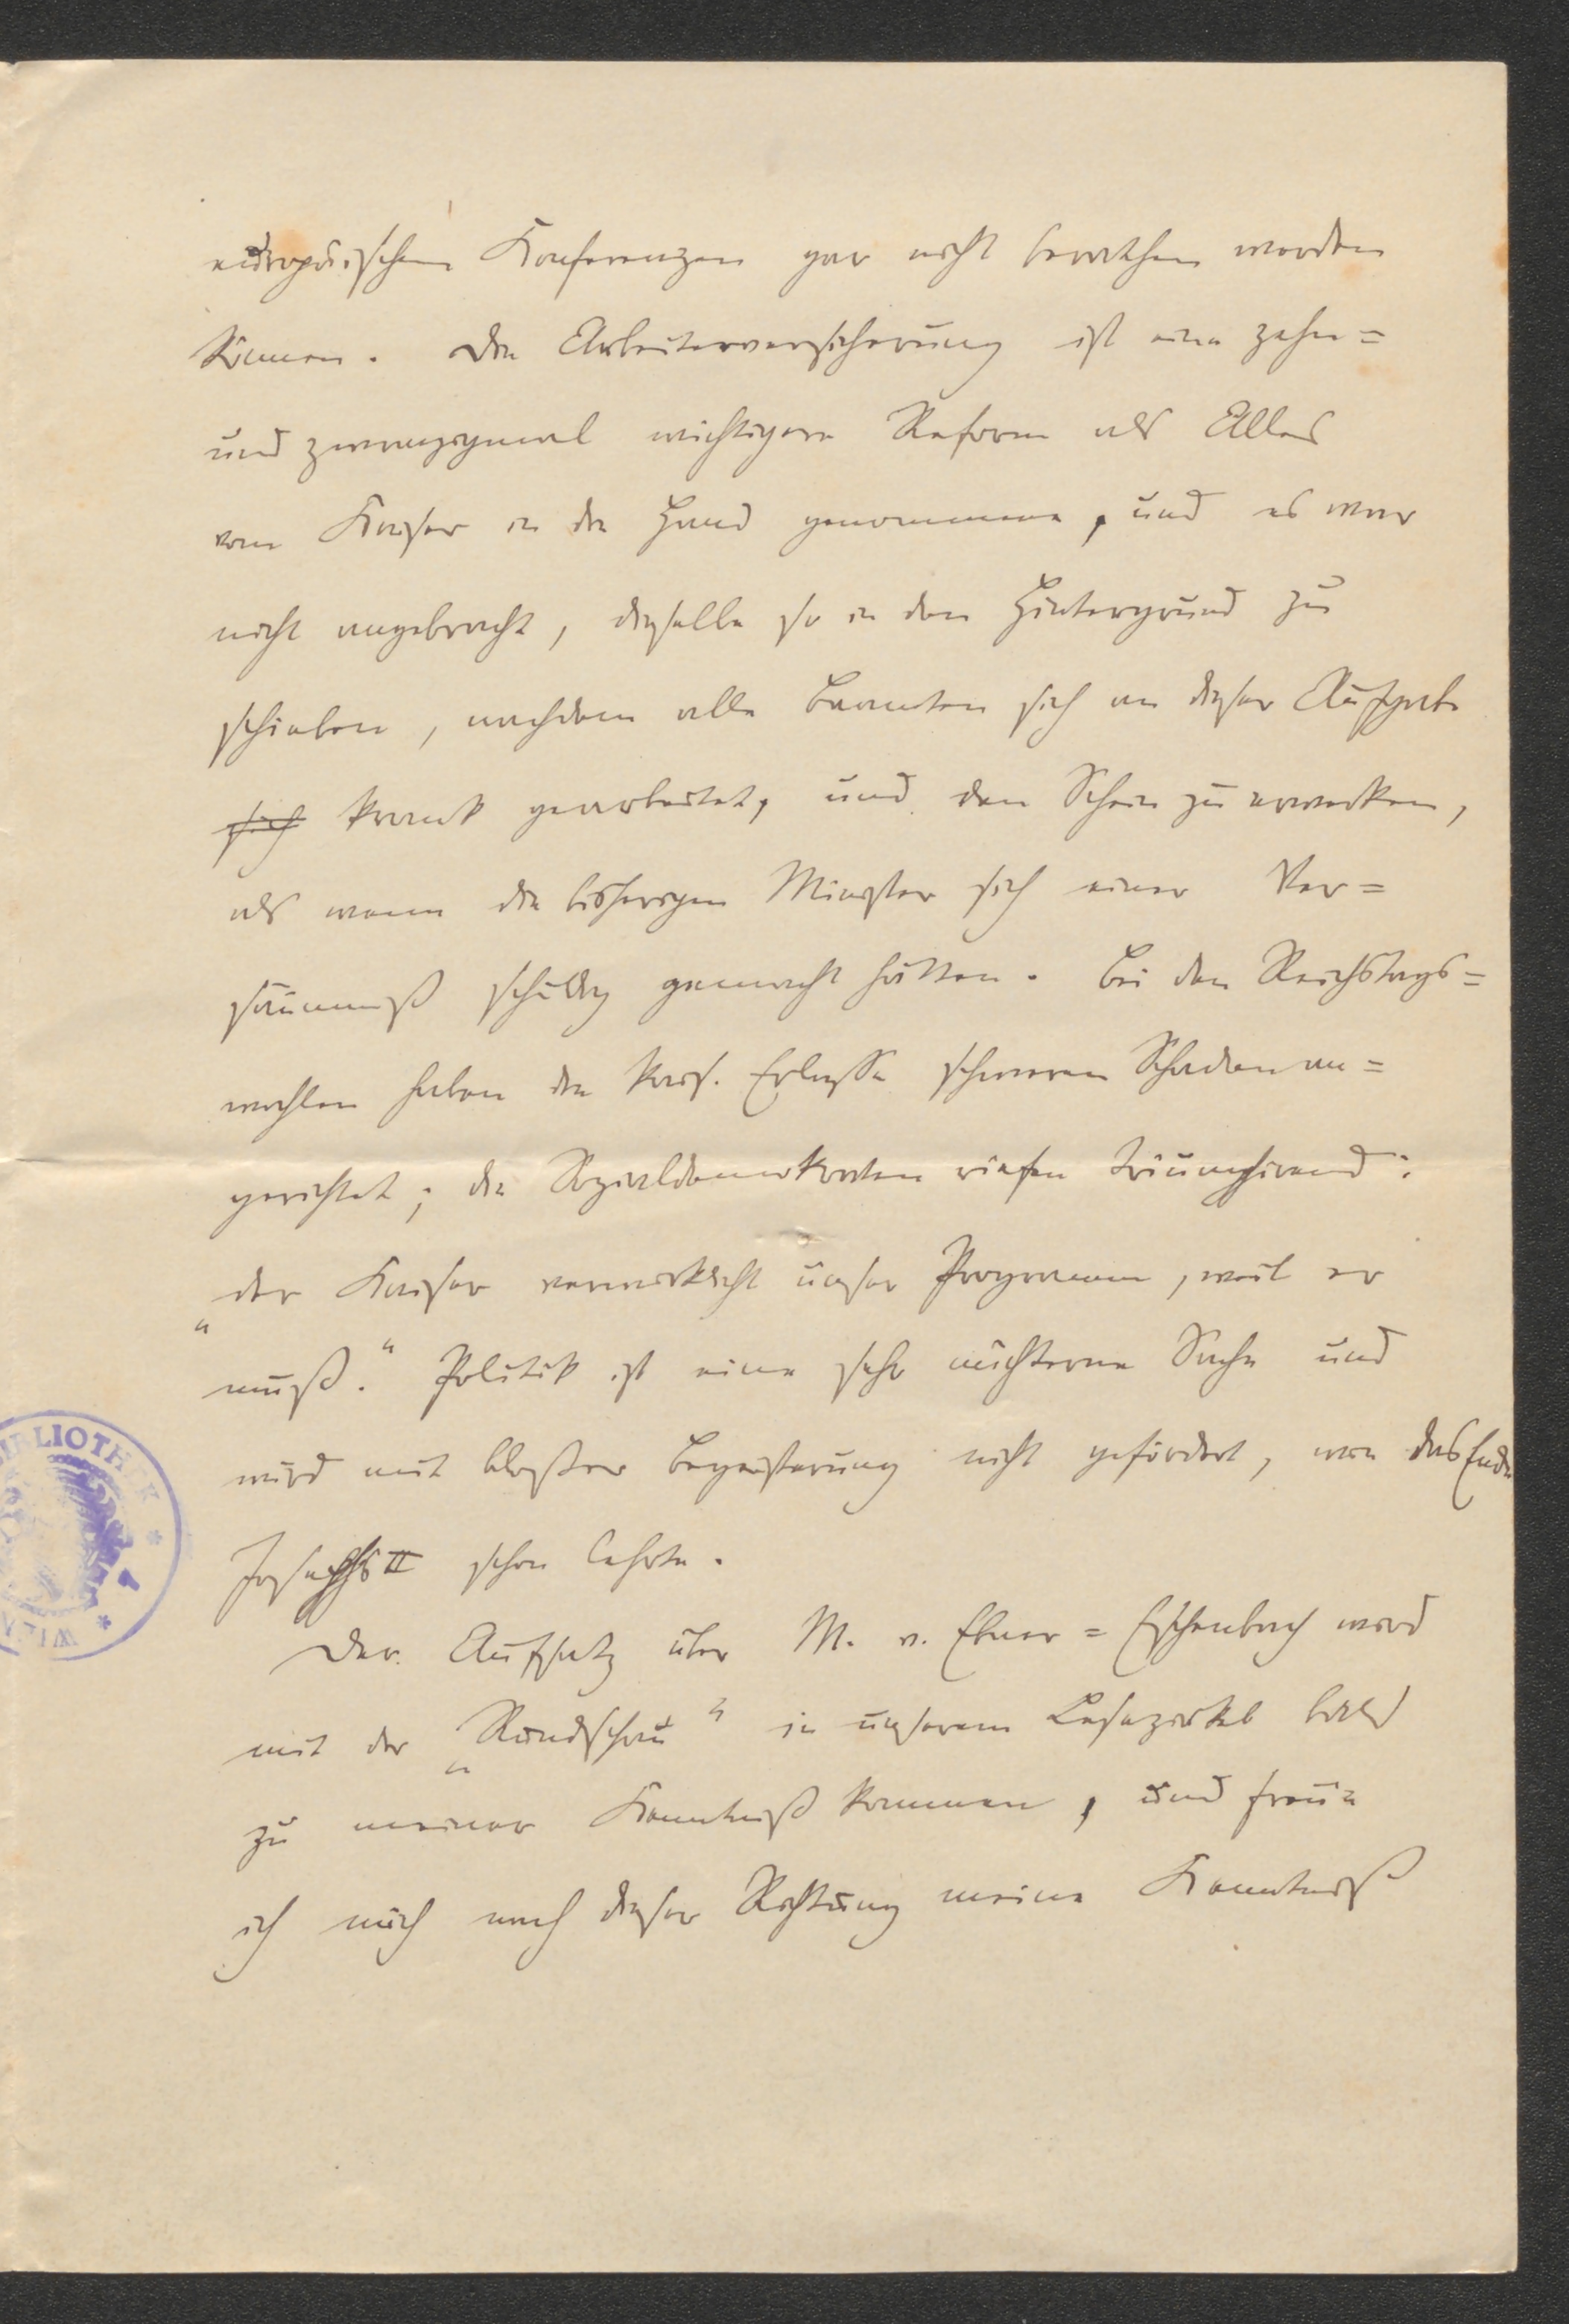 europäischen Konferenzen gar nicht berathen werden
können. Die Arbeiterversicherung ist eine zehn=
und zwanzigmal wichtigere Reform als Alles
vom Kaiser in die Hand genommene, und es war
nicht angebracht, dieselbe so in den Hintergrund zu
schieben, nachdem alle Beamten sich an dieser Aufgabe
sich krank gearbeitet, und den Schein zu erwecken,
als wenn die bisherigen Minister sich einer Ver=
säumniß schuldig gemacht hätten. Bei den Reichstags=
wahlen haben die kais. Erlasse schweren Schaden an=
gerichtet; die Sozialdemokraten riefen triumphirend:
„der Kaiser verwirklicht unser Programm, weil er
muß.“ Politik ist eine sehr nüchterne Sache und
wird mit bloßer Begeisterung nicht gefördert, wie das Ende
Josephs II schon lehrte.
Der Aufsatz über M. v. Ebner=Eschenbach wird
mit der „Rundschau“ in unserem Lesezirkel bald
zu meiner Kenntniß kommen, und freue
ich mich nach dieser Richtung meine Kenntniß
BIBLIOTHEK
WIEN